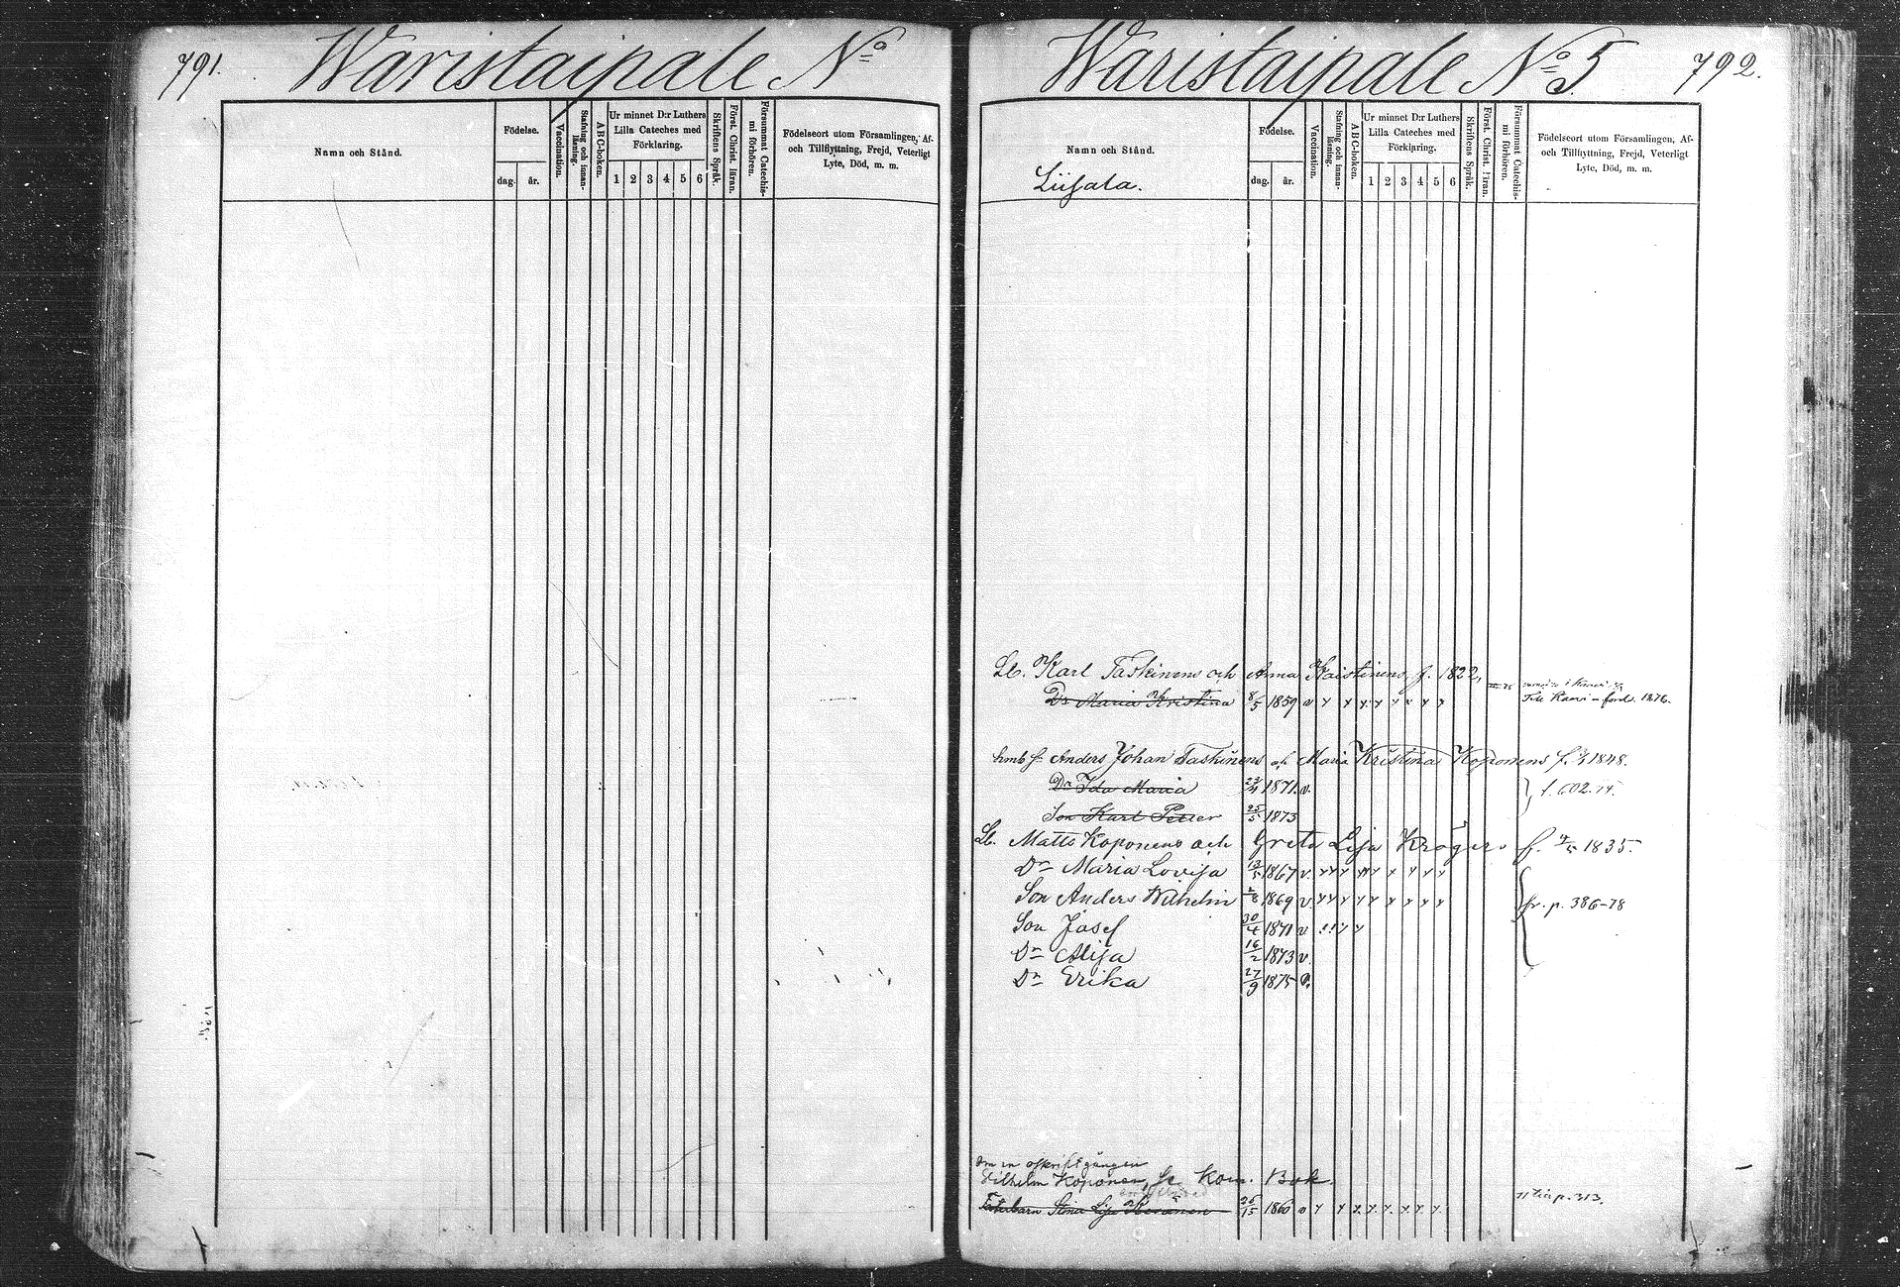 791.
Waristaipale No
Namn och Stånd.
Födelse.
dag.
år.
Vaccination.
Stafning och innan-
läsning.
ABC-boken.
Ur minnet D:r Luthers
Lilla Cateches med
Förklaring.
1 2 3 4 5 6
Skriftens Språk.
Först. Christ.läran.
Försummat Catechis-
mi förhören.
Födelseort utom Församlingen, Af-
och Tillflyttning, Frejd, Veterligt
Lyte, Död, m. m.
Waristaipale No 5
792.
Namn och Stånd.
Liisala.
Födelse.
dag.
år.
Vaccination.
Stafning och innan-
läsning.
ABC-boken.
Ur minnet D:r Luthers
Lilla Cateches med
Förklaring.
1 2 3 4 5 6
Skriftens Språk.
Först. Christ. läran.
Försummat Catechis-
mi förhören.
Födelseort utom Församlingen, Af-
och Tillflyttning, Frejd, Veterligt
Lyte, Död, m. m.
Lb. Karl Taskinens och Anna Kaistinens f. 1822,
Dr Maria Kristina 8/5 1859 v
1876.
Anders Johan Taskinens o. Maria Kristina Koponens f. 1848.
Dr Ida Maria 1871 v.
t. 602.
Son Karl Petter 25/5 1873
Lb. Matts Koponens och Greta Lisa Krögers f. 1835.
Dr Maria Lovisa 13/5 1867 v.
Son Anders Wilhelm 1869 v.
fr. p. 386-78
Son Josef 30/4 1871 v
Dr Alisa 16/2 1873 v.
Dr Erika 27/9 1875
Wilhelm Koponen, se Kom. Bok.
Stina Lisa 1860
p. 313.